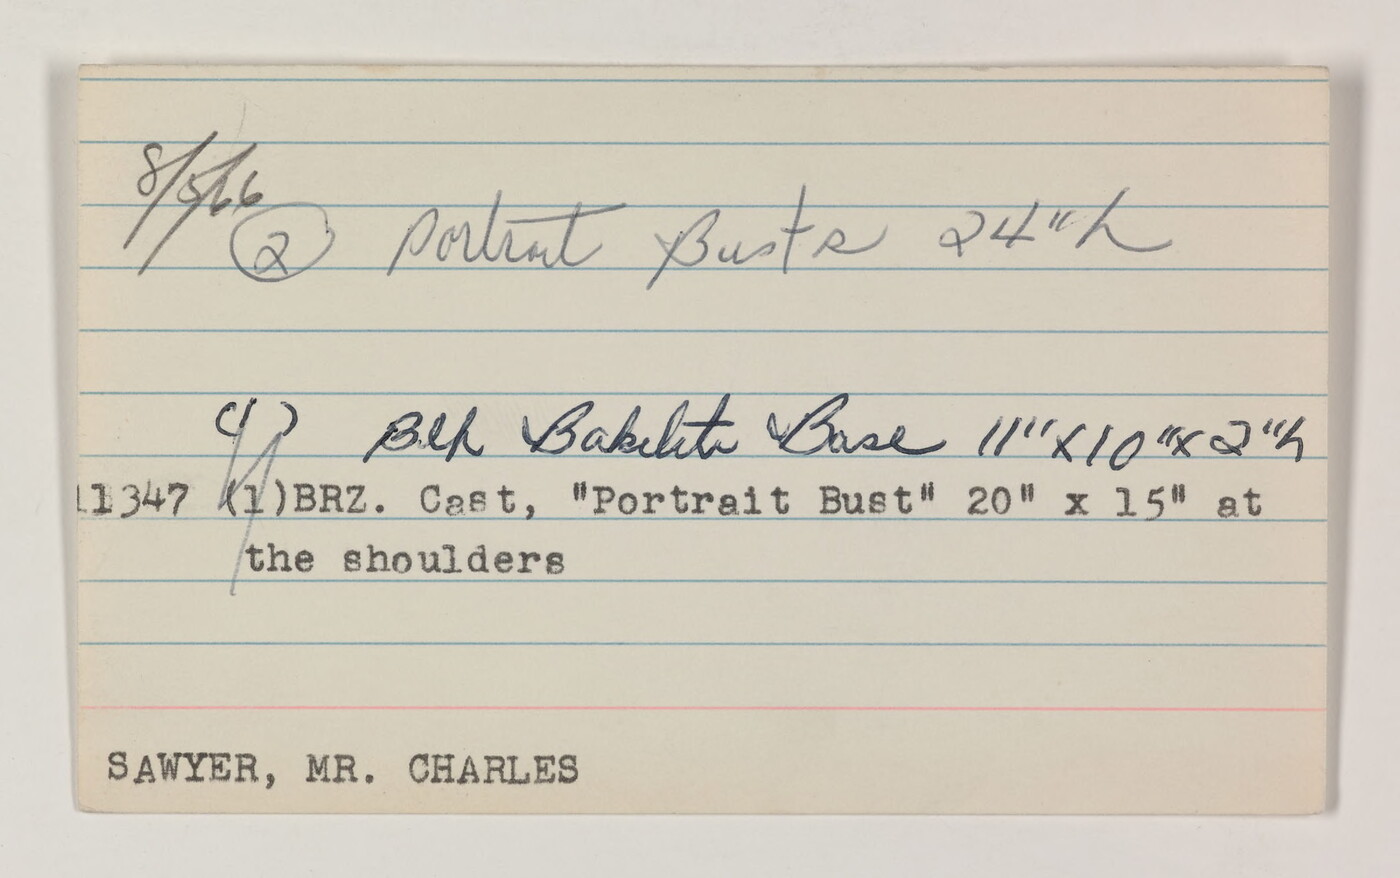 8/5/66
② Portrait Busts 24"h
(1) Blk Bakelite Base 11" x 10" x 2"h
11347 (1)BRZ. Cast, "Portrait Bust" 20" x 15" at
the shoulders
SAWYER, MR. CHARLES